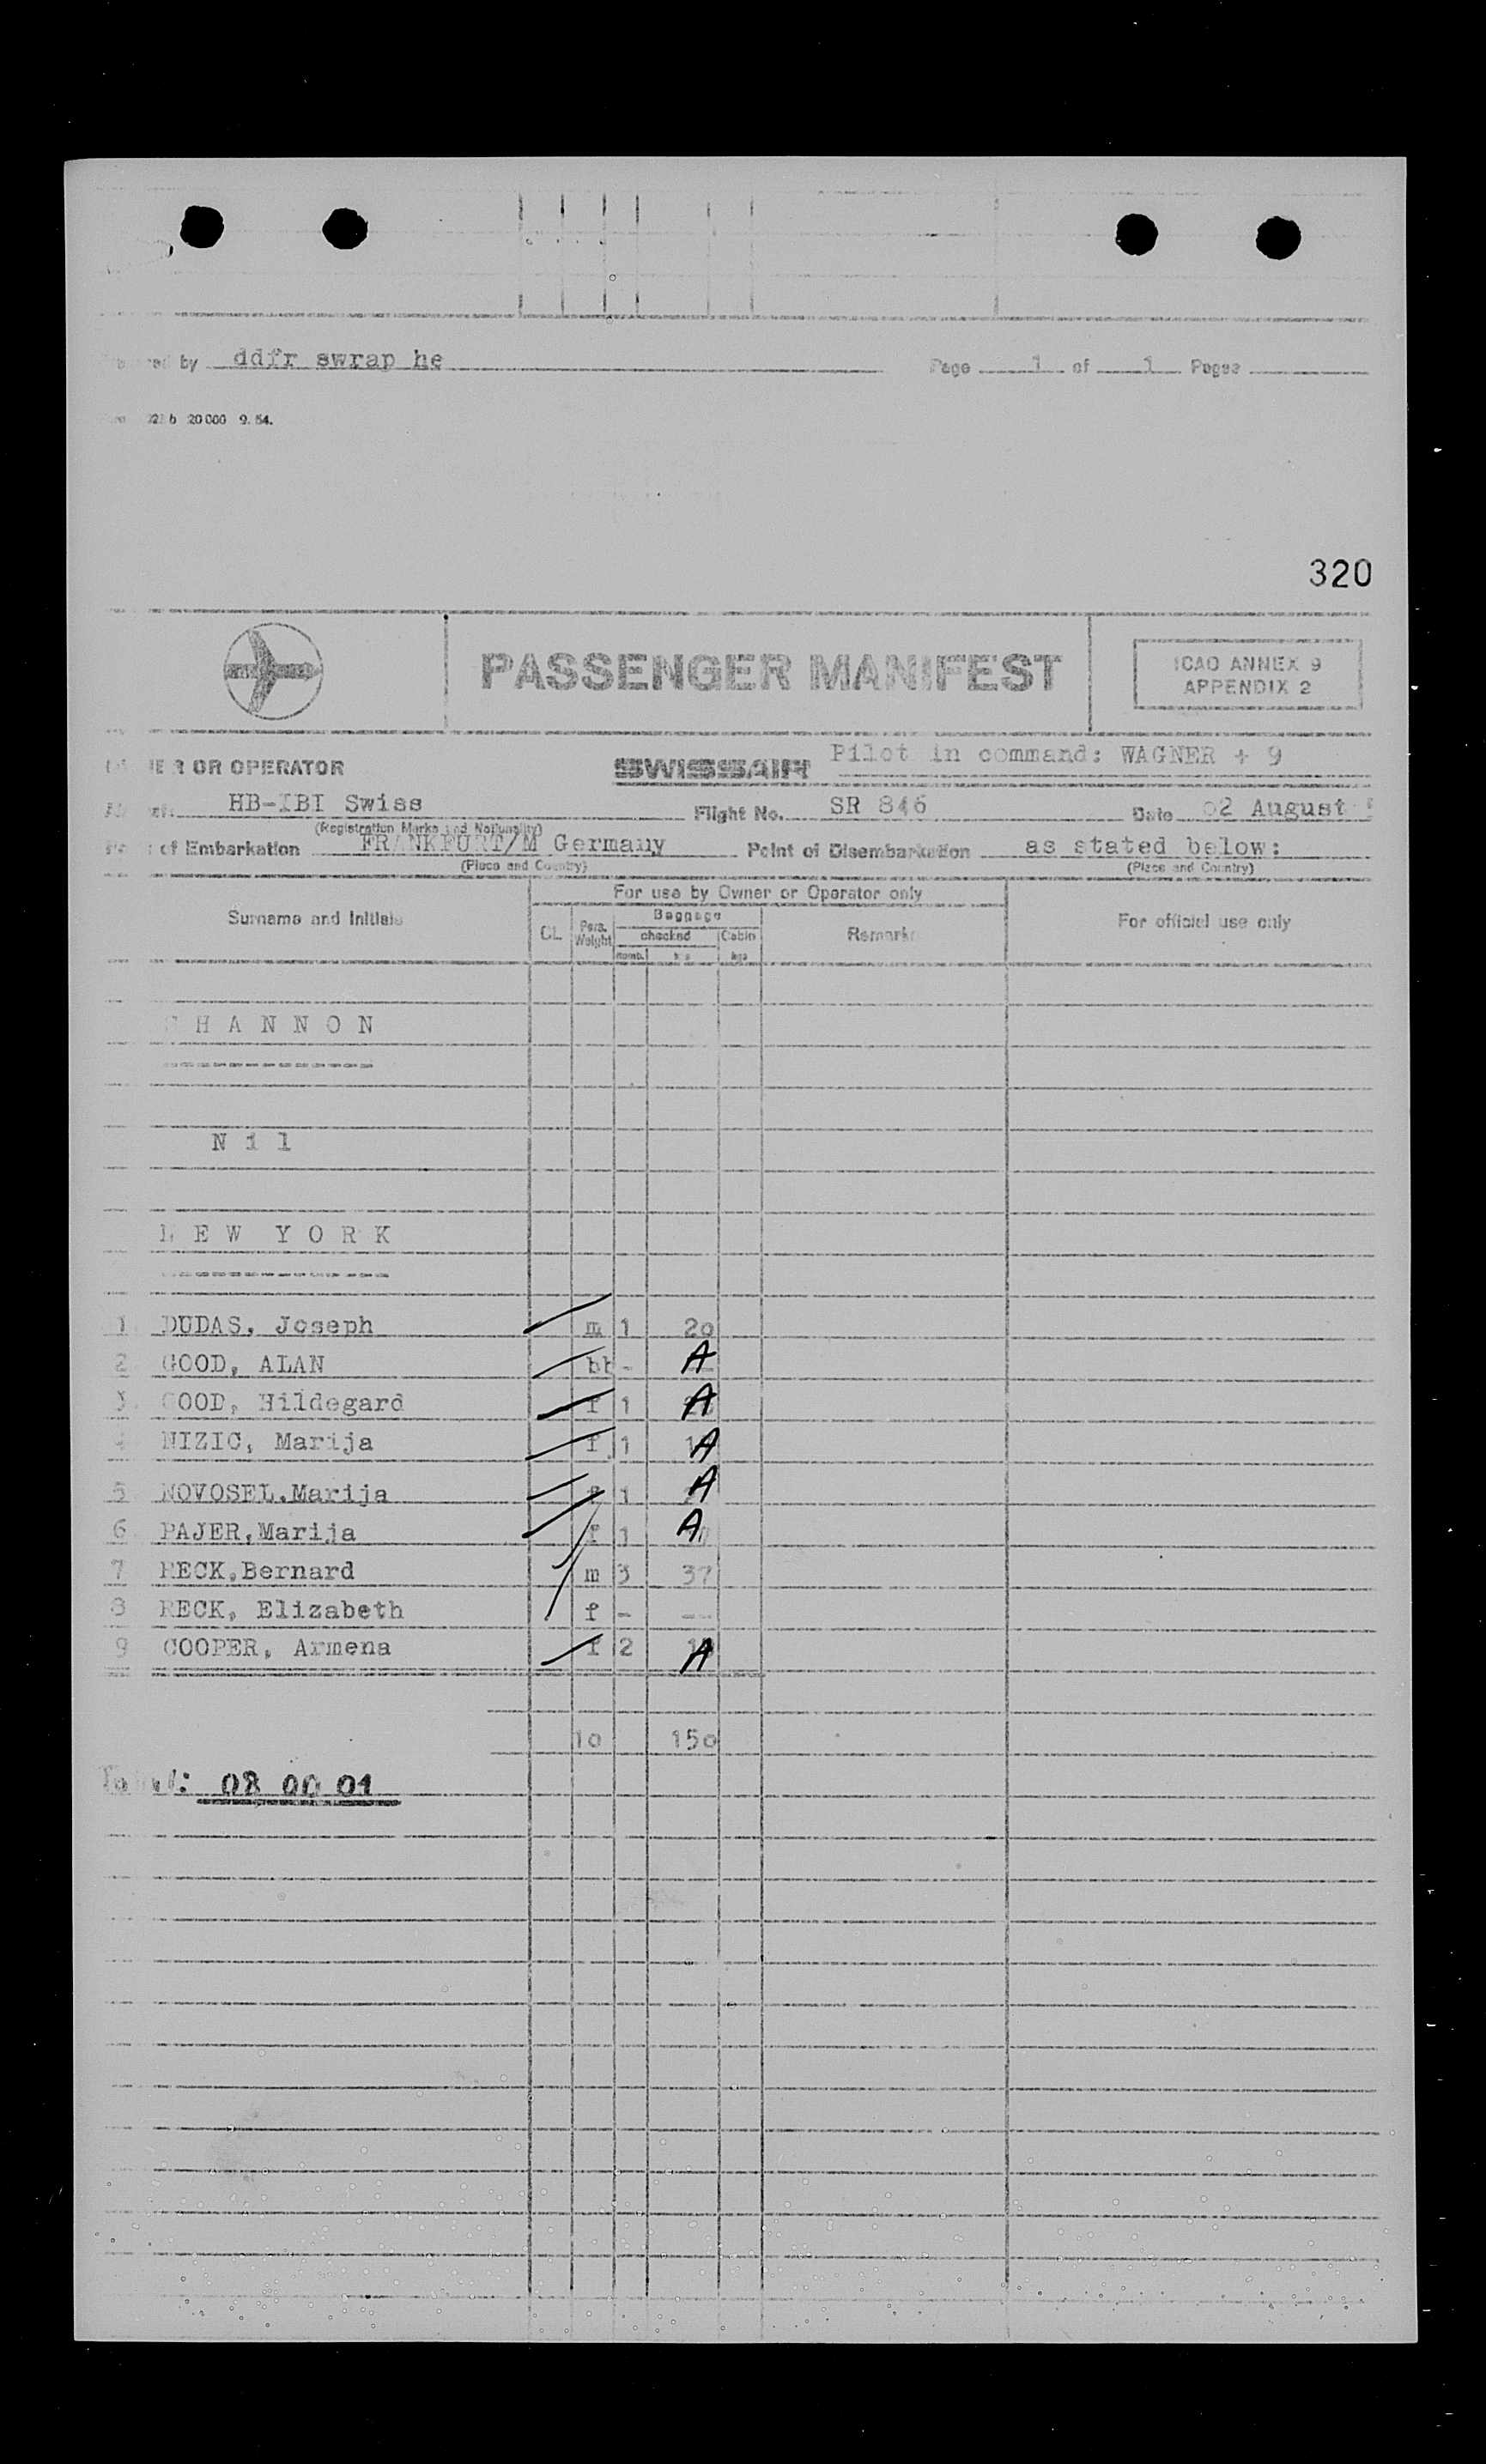 by ddfr swrap he Page 1 of 1 Pages
b 20 000 9. 54.
320
PASSENGER MANIFEST
ICAO ANNEX 9
APPENDIX 2
OR OPERATOR SWISSAIR Pilot in command: WAGNER + 9
HB-IBI Swiss Flight No. SR 846 Date 02 August
(Registration Marks and Nationality)
of Embarkation FRANKFURT/M Germany Point of Disembarkation as stated below:
(Place and Country) (Place and Country)
Surname and Initials
For use by Owner or Operator only
CL
Pers. Weight
Baggage
checked Cabin
numb. kgs kgs
Remarks
For official use only
SHANNON
Nil
NEW YORK
1 DUDAS, Joseph m 1 20
2 GOOD, ALAN - A
3 GOOD, Hildegard f 1 A
4 NIZIC, Marija f 1 A
5 NOVOSEL.Marija f 1 A
6 PAJER,Marija f 1 A
7 RECK,Bernard m 3 37
8 RECK, Elizabeth f - --
9 COOPER, Armena f 2 A
10 150
Total: 08 00 01